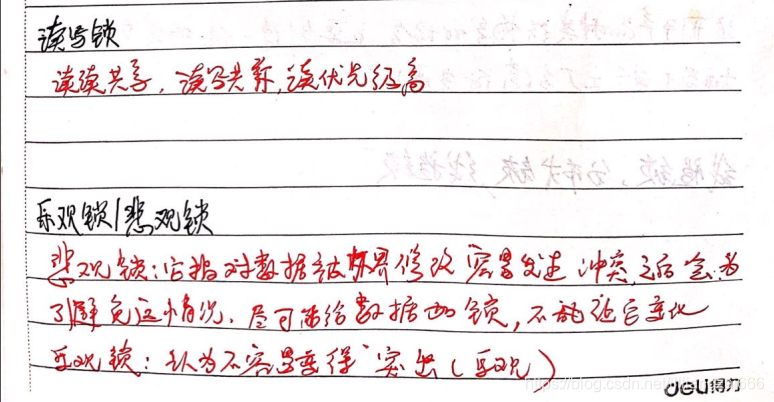 读写锁
读读共享，读写共享，读优先级高
乐观锁/悲观锁
悲观锁：它指对数据被外界修改容易发生冲突，之后会为
了避免这情况，尽可能给数据加锁，不能让它变化
乐观锁：认为不容易变得突出（乐观）
deli得力